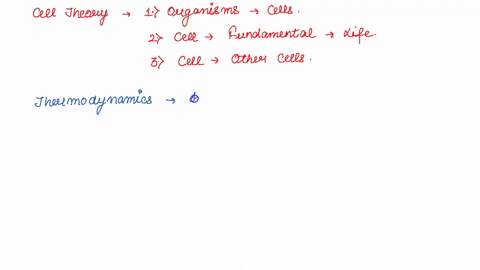 Cell Theory → 1.) Organisms → Cells.
2.) Cell → Fundamental → Life.
3.) Cell → Other Cells.
Thermodynamics →